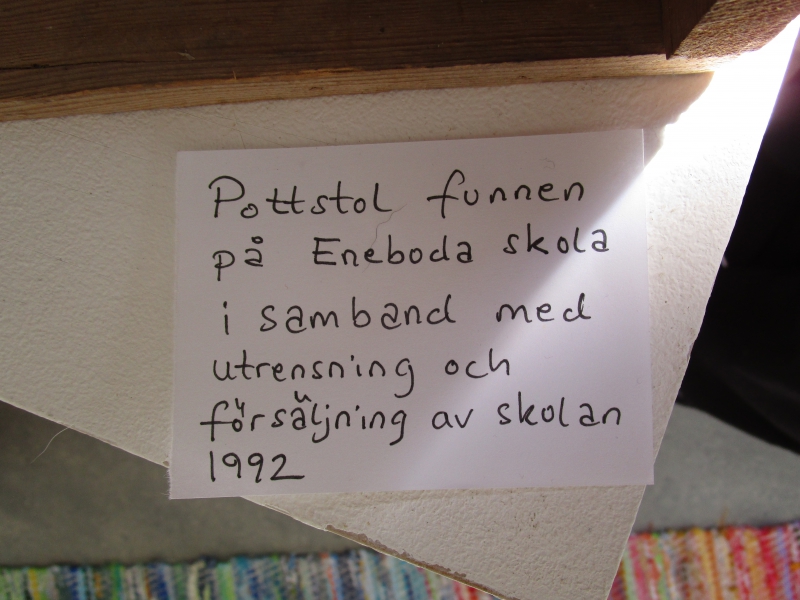 Pottstol funnen
på Eneboda skola
i samband med
utrensning och
försäljning av skolan
1992